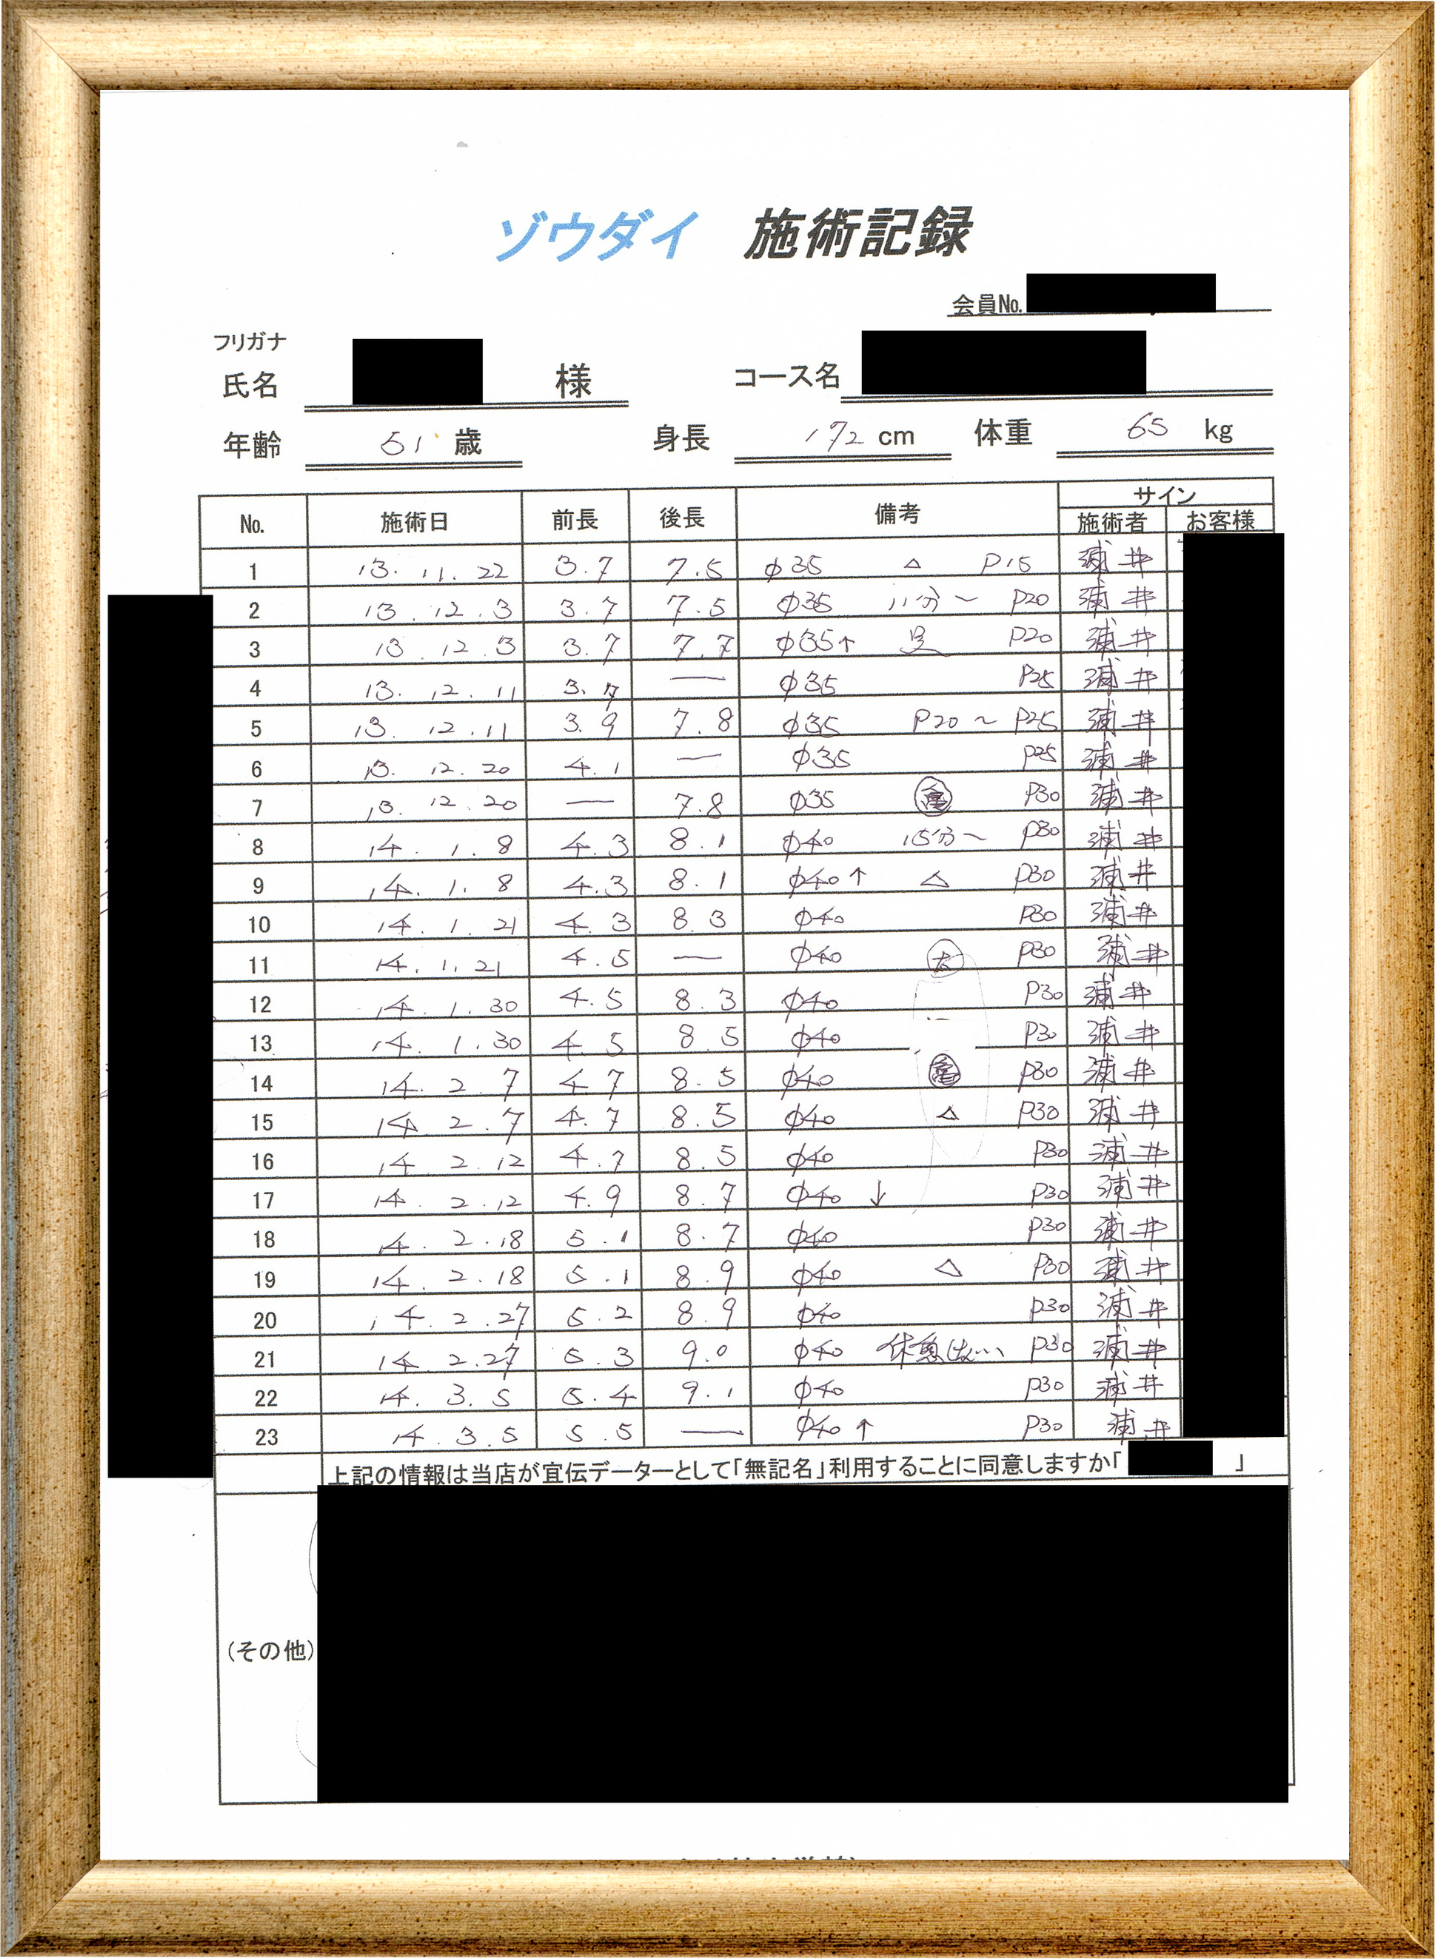 ゾウダイ 施術記録
会員No.
フリガナ
氏名 様 コース名
年齢 51 歳 身長 172 cm 体重 65 kg
No. 施術日 前長 後長 備考 サイン
施術者 お客様
1 13. 11. 22 3.7 7.5 φ35 △ P15 浦井
2 13. 12. 3 3.7 7.5 φ35 11分~ P20 浦井
3 13. 12. 3 3.7 7.7 φ35↑ P20 浦井
4 13. 12. 11 3.7 — φ35 P25 浦井
5 13. 12. 11 3.9 7.8 φ35 P20~P25 浦井
6 13. 12. 20 4.1 — φ35 P25 浦井
7 13. 12. 20 — 7.8 φ35 亀 P30 浦井
8 14. 1. 8 4.3 8.1 φ40 15分~ P30 浦井
9 14. 1. 8 4.3 8.1 φ40↑ △ P30 浦井
10 14. 1. 21 4.3 8.3 φ40 P30 浦井
11 14. 1. 21 4.5 — φ40 太 P30 浦井
12 14. 1. 30 4.5 8.3 φ40 P30 浦井
13 14. 1. 30 4.5 8.5 φ40 P30 浦井
14 14. 2. 7 4.7 8.5 φ40 亀 P30 浦井
15 14. 2. 7 4.7 8.5 φ40 △ P30 浦井
16 14. 2. 12 4.7 8.5 φ40 P30 浦井
17 14. 2. 12 4.9 8.7 φ40 ↓ P30 浦井
18 14. 2. 18 5.1 8.7 φ40 P30 浦井
19 14. 2. 18 5.1 8.9 φ40 △ P30 浦井
20 14. 2. 27 5.2 8.9 φ40 P30 浦井
21 14. 2. 27 5.3 9.0 φ40 休憩はい P30 浦井
22 14. 3. 5 5.4 9.1 φ40 P30 浦井
23 14. 3. 5 5.5 — φ40↑ P30 浦井
上記の情報は当店が宣伝データーとして「無記名」利用することに同意しますか「 」
(その他)